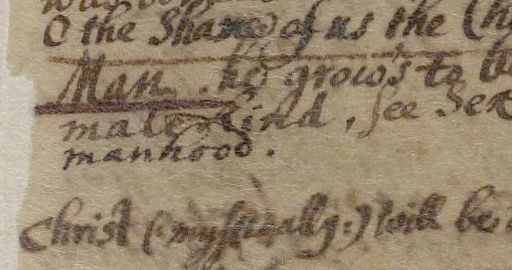 O the Shame of us the
Man. he grow's to
male kind, see Sex
manhood.
Christ (: mystically :) will be